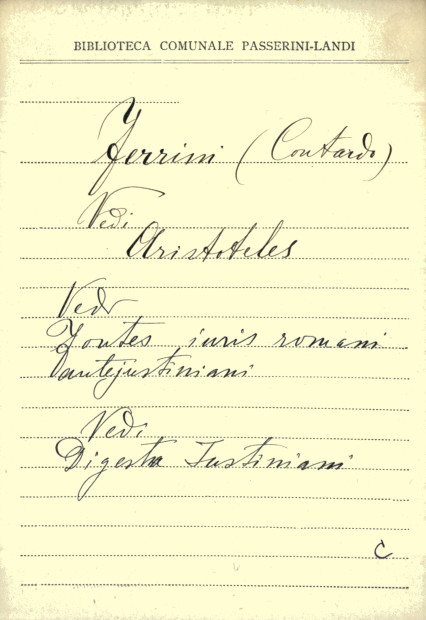 BIBLIOTECA COMUNALE PASSERINI-LANDI
Ferrini (Contardo)
Vedi
Aristoteles
Vedi
Fontes iuris romani
antejustiniani
Vedi
Digesta Iustiniani
C